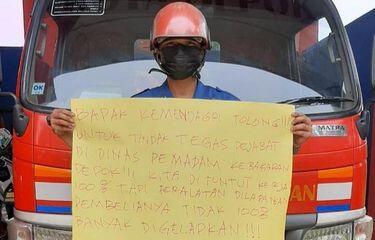 OK
MATRA
BAPAK KEMENDAGRI TOLONG!!!
UNTUK TINDAK TEGAS PEJABAT
DI DINAS PEMADAM KEBAKARAN
DEPOK!!! KITA DI TUNTUT KERJA
100% TAPI PERALATAN DI LAPANGAN
PEMBELIANYA TIDAK 100%
BANYAK DIGELAPKAN!!!